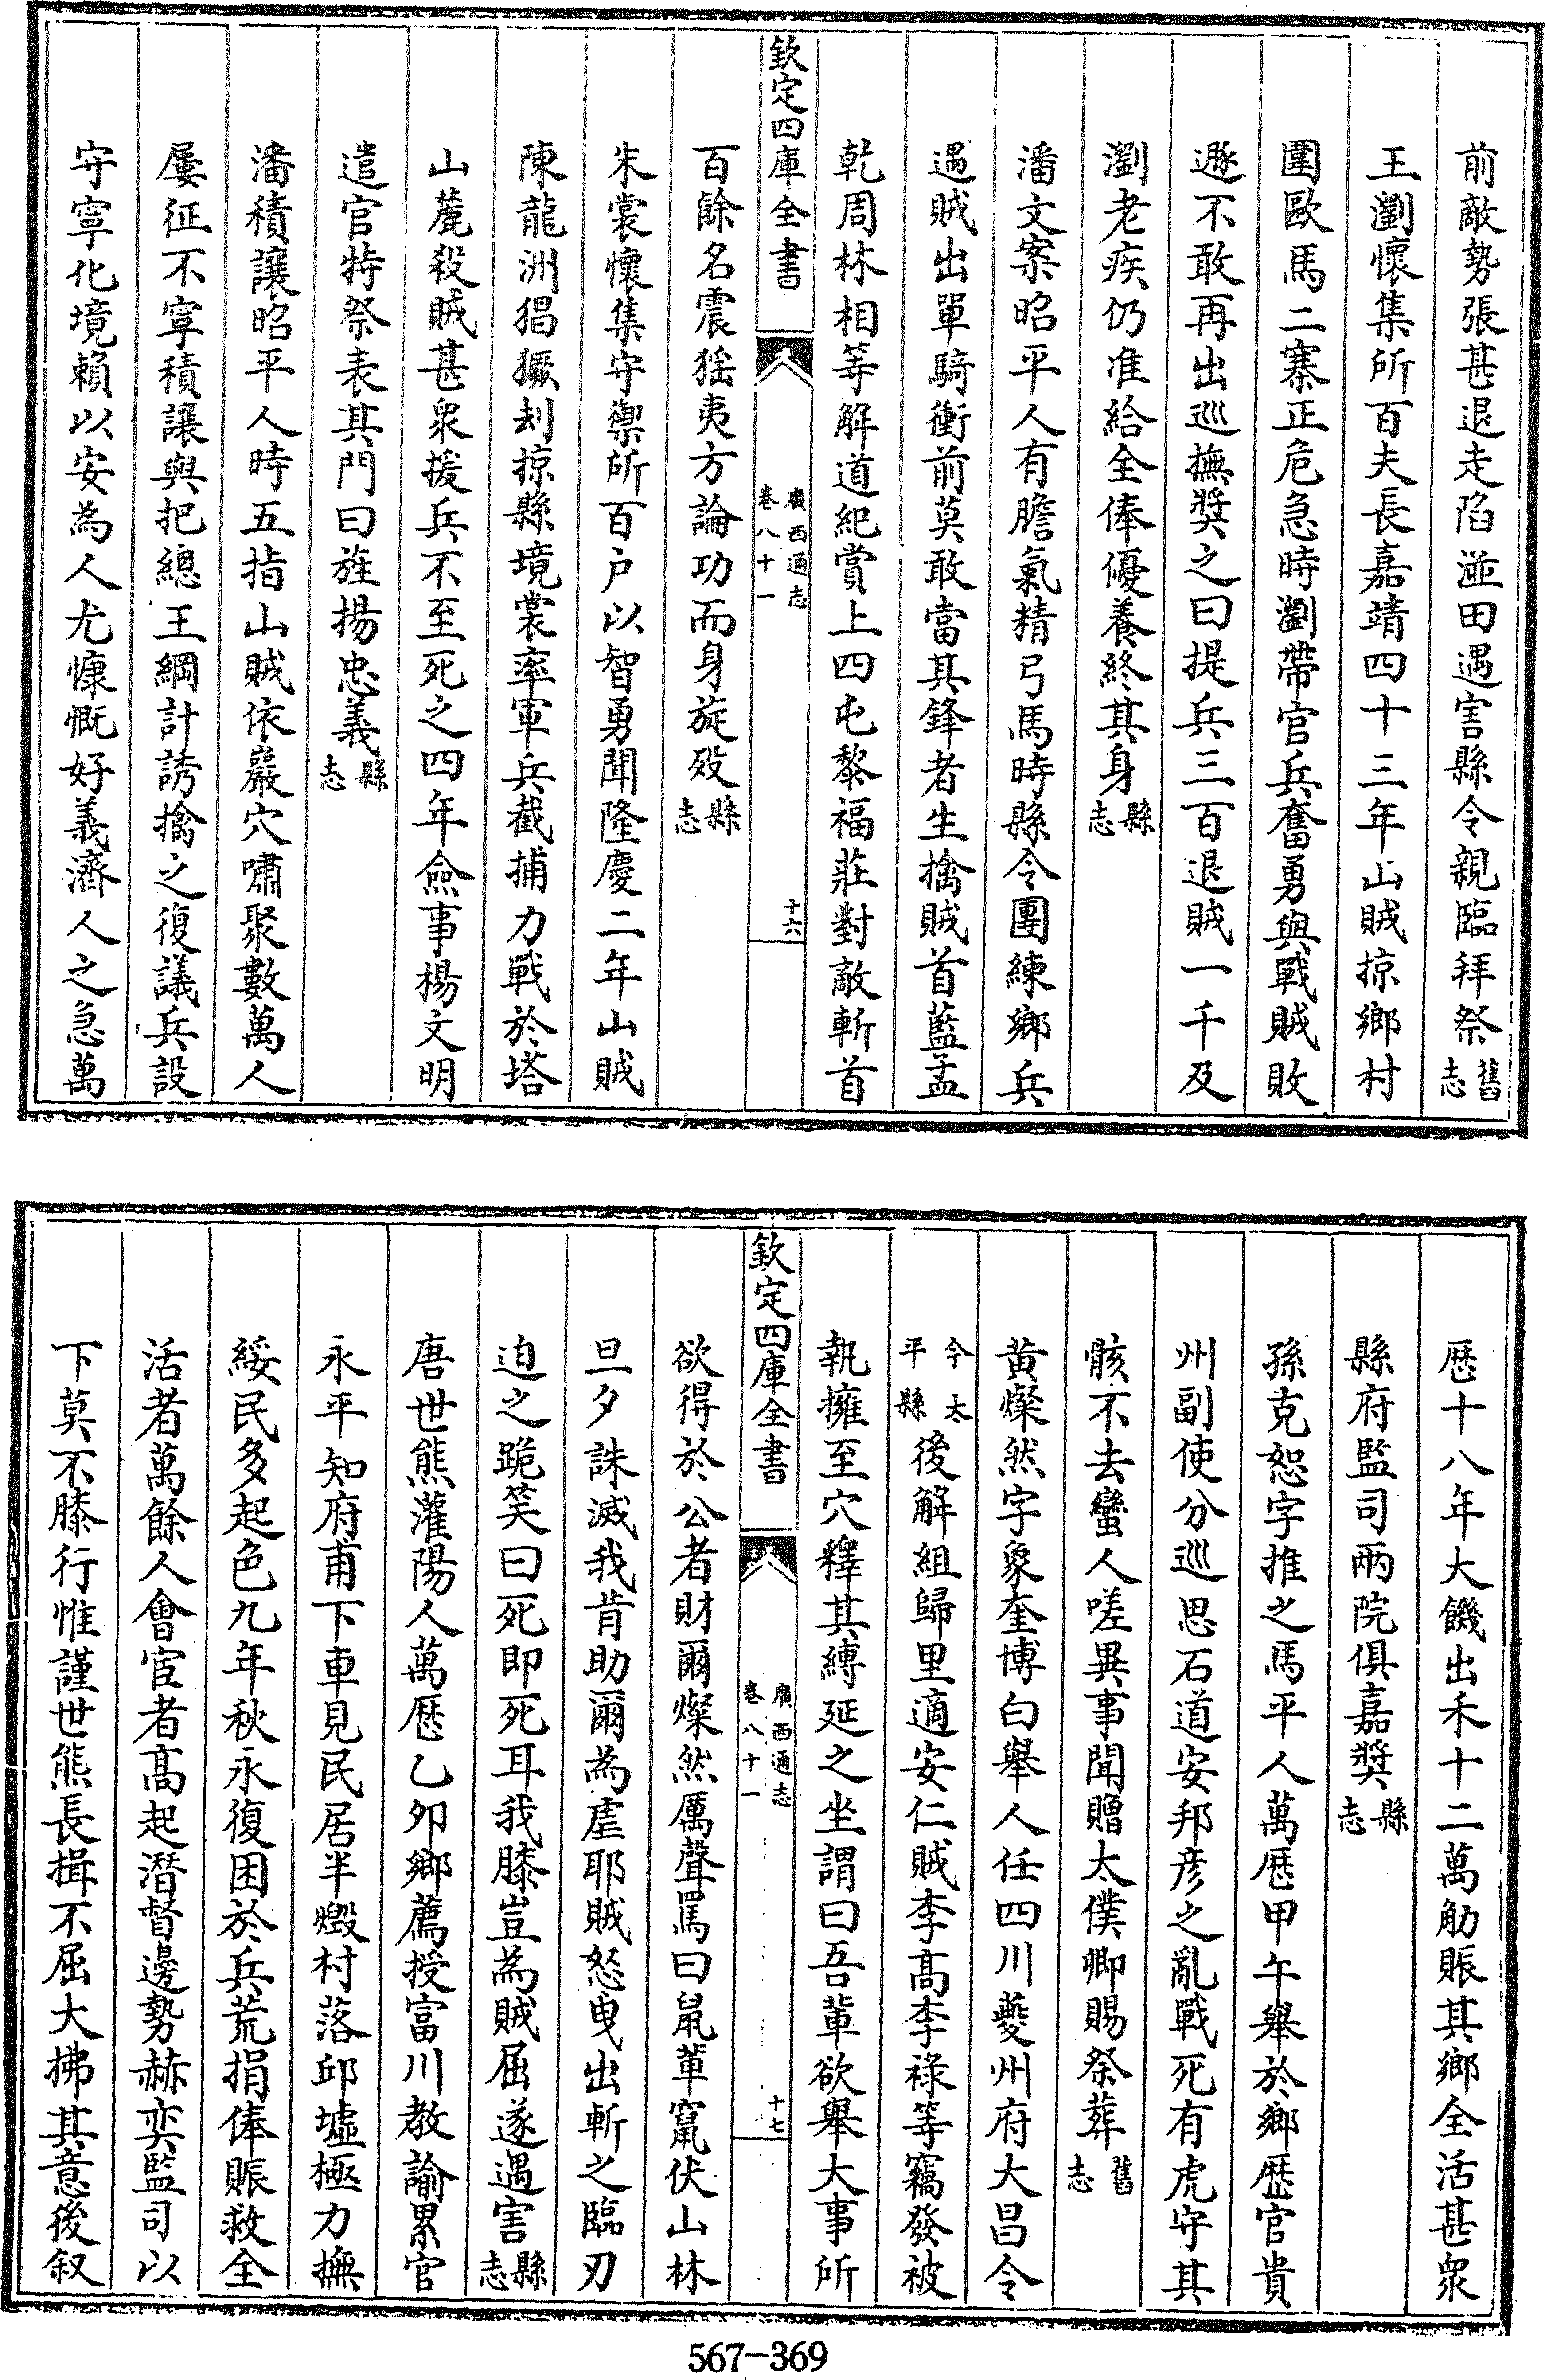 前敵勢張甚退走陷湴田遇害縣令親臨拜祭舊志
王瀏懷集所百夫長嘉靖四十三年山賊掠鄉村
圍歐馬二寨正危急時瀏帶官兵奮勇與戰賊敗
遯不敢再出巡撫獎之曰提兵三百退賊一千及
瀏老疾仍准給全俸優養終其身縣志
潘文案昭平人有膽氣精弓馬時縣令團練鄉兵
遇賊出單騎衝前莫敢當其鋒者生擒賊首藍孟
乾周林相等解道紀賞上四屯黎福莊對敵斬首
欽定四庫全書 廣西通志 卷八十一 十六
百餘名震猺夷方論功而身旋歿縣志
朱裳懷集守禦所百戶以智勇聞隆慶二年山賊
陳龍洲猖獗刦掠縣境裳率軍兵截捕力戰於塔
山麓殺賊甚衆援兵不至死之四年僉事楊文明
遣官特祭表其門曰旌揚忠義縣志
潘積讓昭平人時五指山賊依巖穴嘯聚數萬人
屢征不寧積讓與把總王綱計誘擒之復議兵設
守寧化境賴以安為人尤慷慨好義濟人之急萬
歴十八年大饑出禾十二萬觔賑其鄉全活甚衆
縣府監司兩院俱嘉奬縣志
孫克恕字推之馬平人萬歴甲午舉於鄉歴官貴
州副使分巡思石道安邦彦之亂戰死有虎守其
骸不去蠻人嗟異事聞贈太僕卿賜祭葬舊志
黄燦然字象奎博白舉人任四川夔州府大昌令
今太平縣後解組歸里適安仁賊李高李祿等竊發被
執擁至穴釋其縛延之坐謂曰吾軰欲舉大事所
欽定四庫全書 廣西通志 卷八十一 十七
欲得於公者財爾燦然厲聲罵曰鼠軰竄伏山林
旦夕誅滅我肯助爾為虐耶賊怒曳出斬之臨刃
迫之跪笑曰死即死耳我膝豈為賊屈遂遇害縣志
唐世熊灌陽人萬歴乙夘鄉薦授富川教諭累官
永平知府甫下車見民居半燬村落邱墟極力撫
綏民多起色九年秋永復困於兵荒捐俸賑救全
活者萬餘人會宦者高起潛督邊勢赫奕監司以
下莫不膝行惟謹世熊長揖不屈大拂其意後叙
567-369